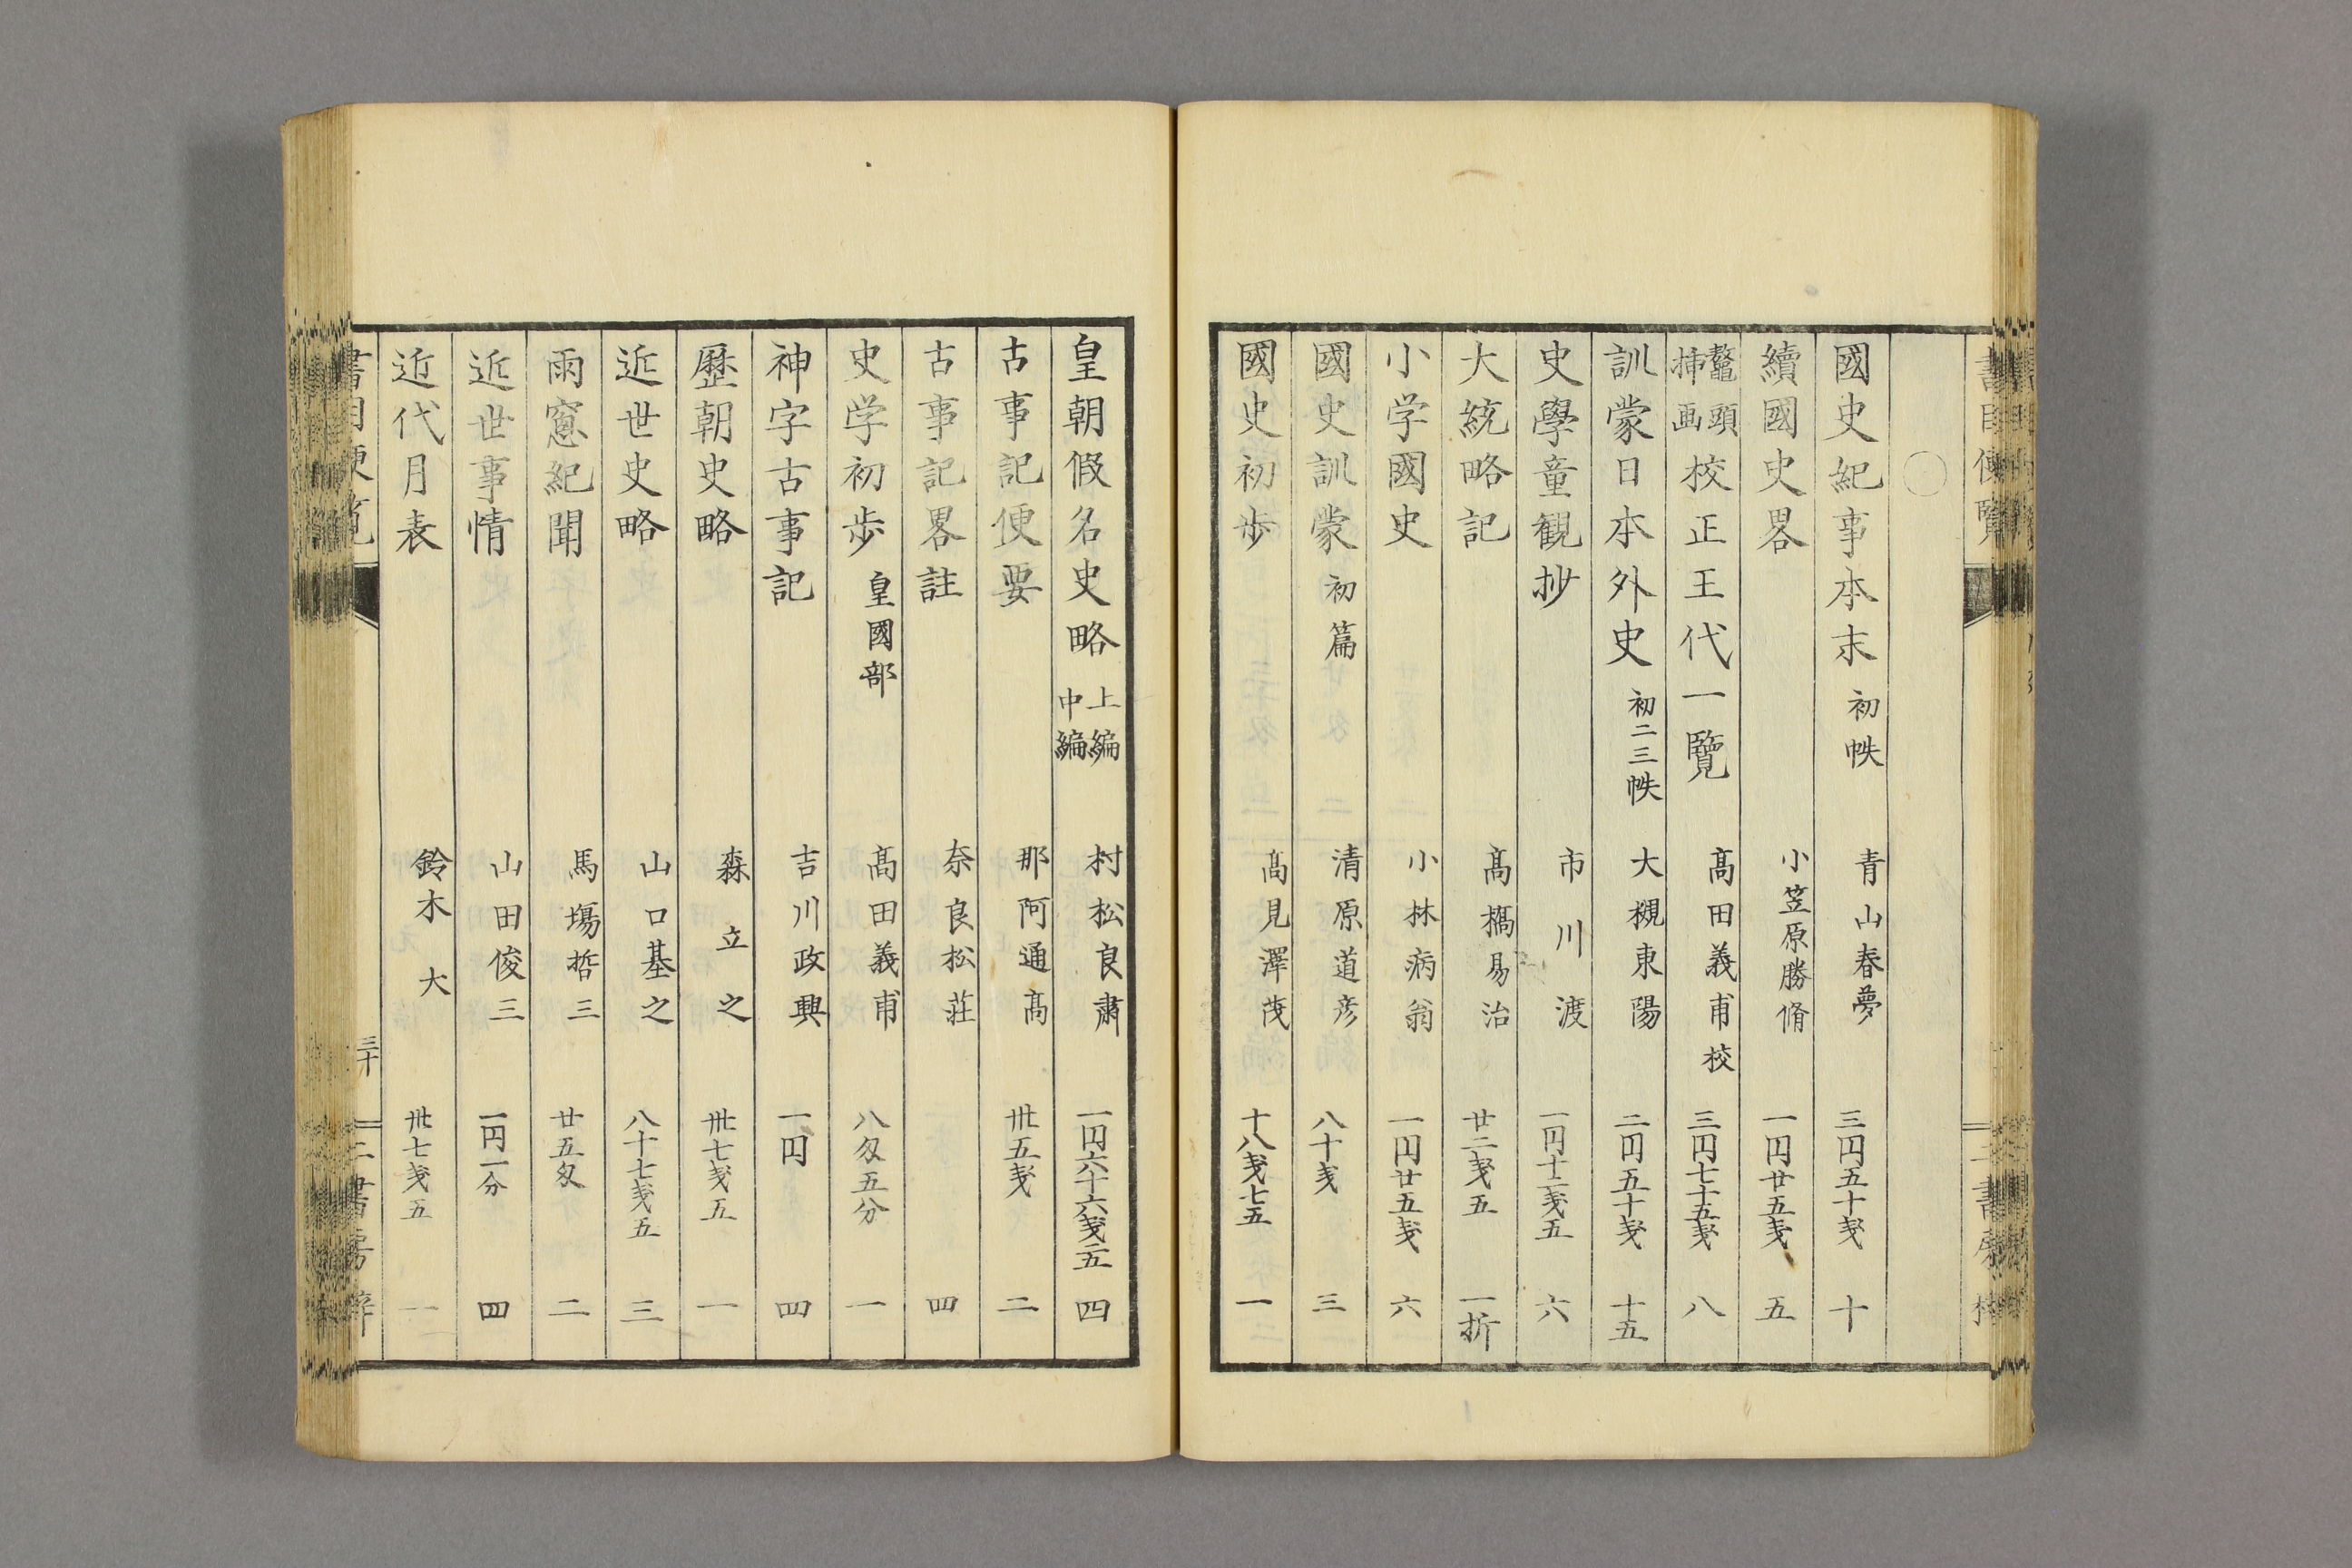 書目便覧
〇
國史紀事本末 初帙 青山春夢 三円五十戔 十
續國史畧 小笠原勝脩 一円廿五戔 五
鼇頭挿画校正王代一覽 髙田義甫校 三円七十五戔 八
訓蒙日本外史 初二三帙 大槻東陽 二円五十戔 十五
史學童観抄 市川渡 一円十二戔五 六
大統略記 髙槗易治 廿二戔五 一折
小学國史 小林病翁 一円廿五戔 六
國史訓蒙 初篇 清原道彦 八十戔 三
國史初歩 髙見澤茂 十八戔七五 一
皇朝假名史略 上編中編 村松良肅 一円六十六戔五 四
古事記便要 那阿通髙 丗五戔 二
古事記畧註 奈良松荘 四
史学初歩 皇國部 髙田義甫 八匁五分 一
神字古事記 吉川政興 一円 四
歷朝史略 森立之 丗七戔五 一
近世史略 山口基之 八十七戔五 三
雨窓紀聞 馬塲哲三 廿五匁 二
近世事情 山田俊三 一円一分 四
近代月表 鈴木大 丗七戔五 一
書目便覧 三十 三書房梓